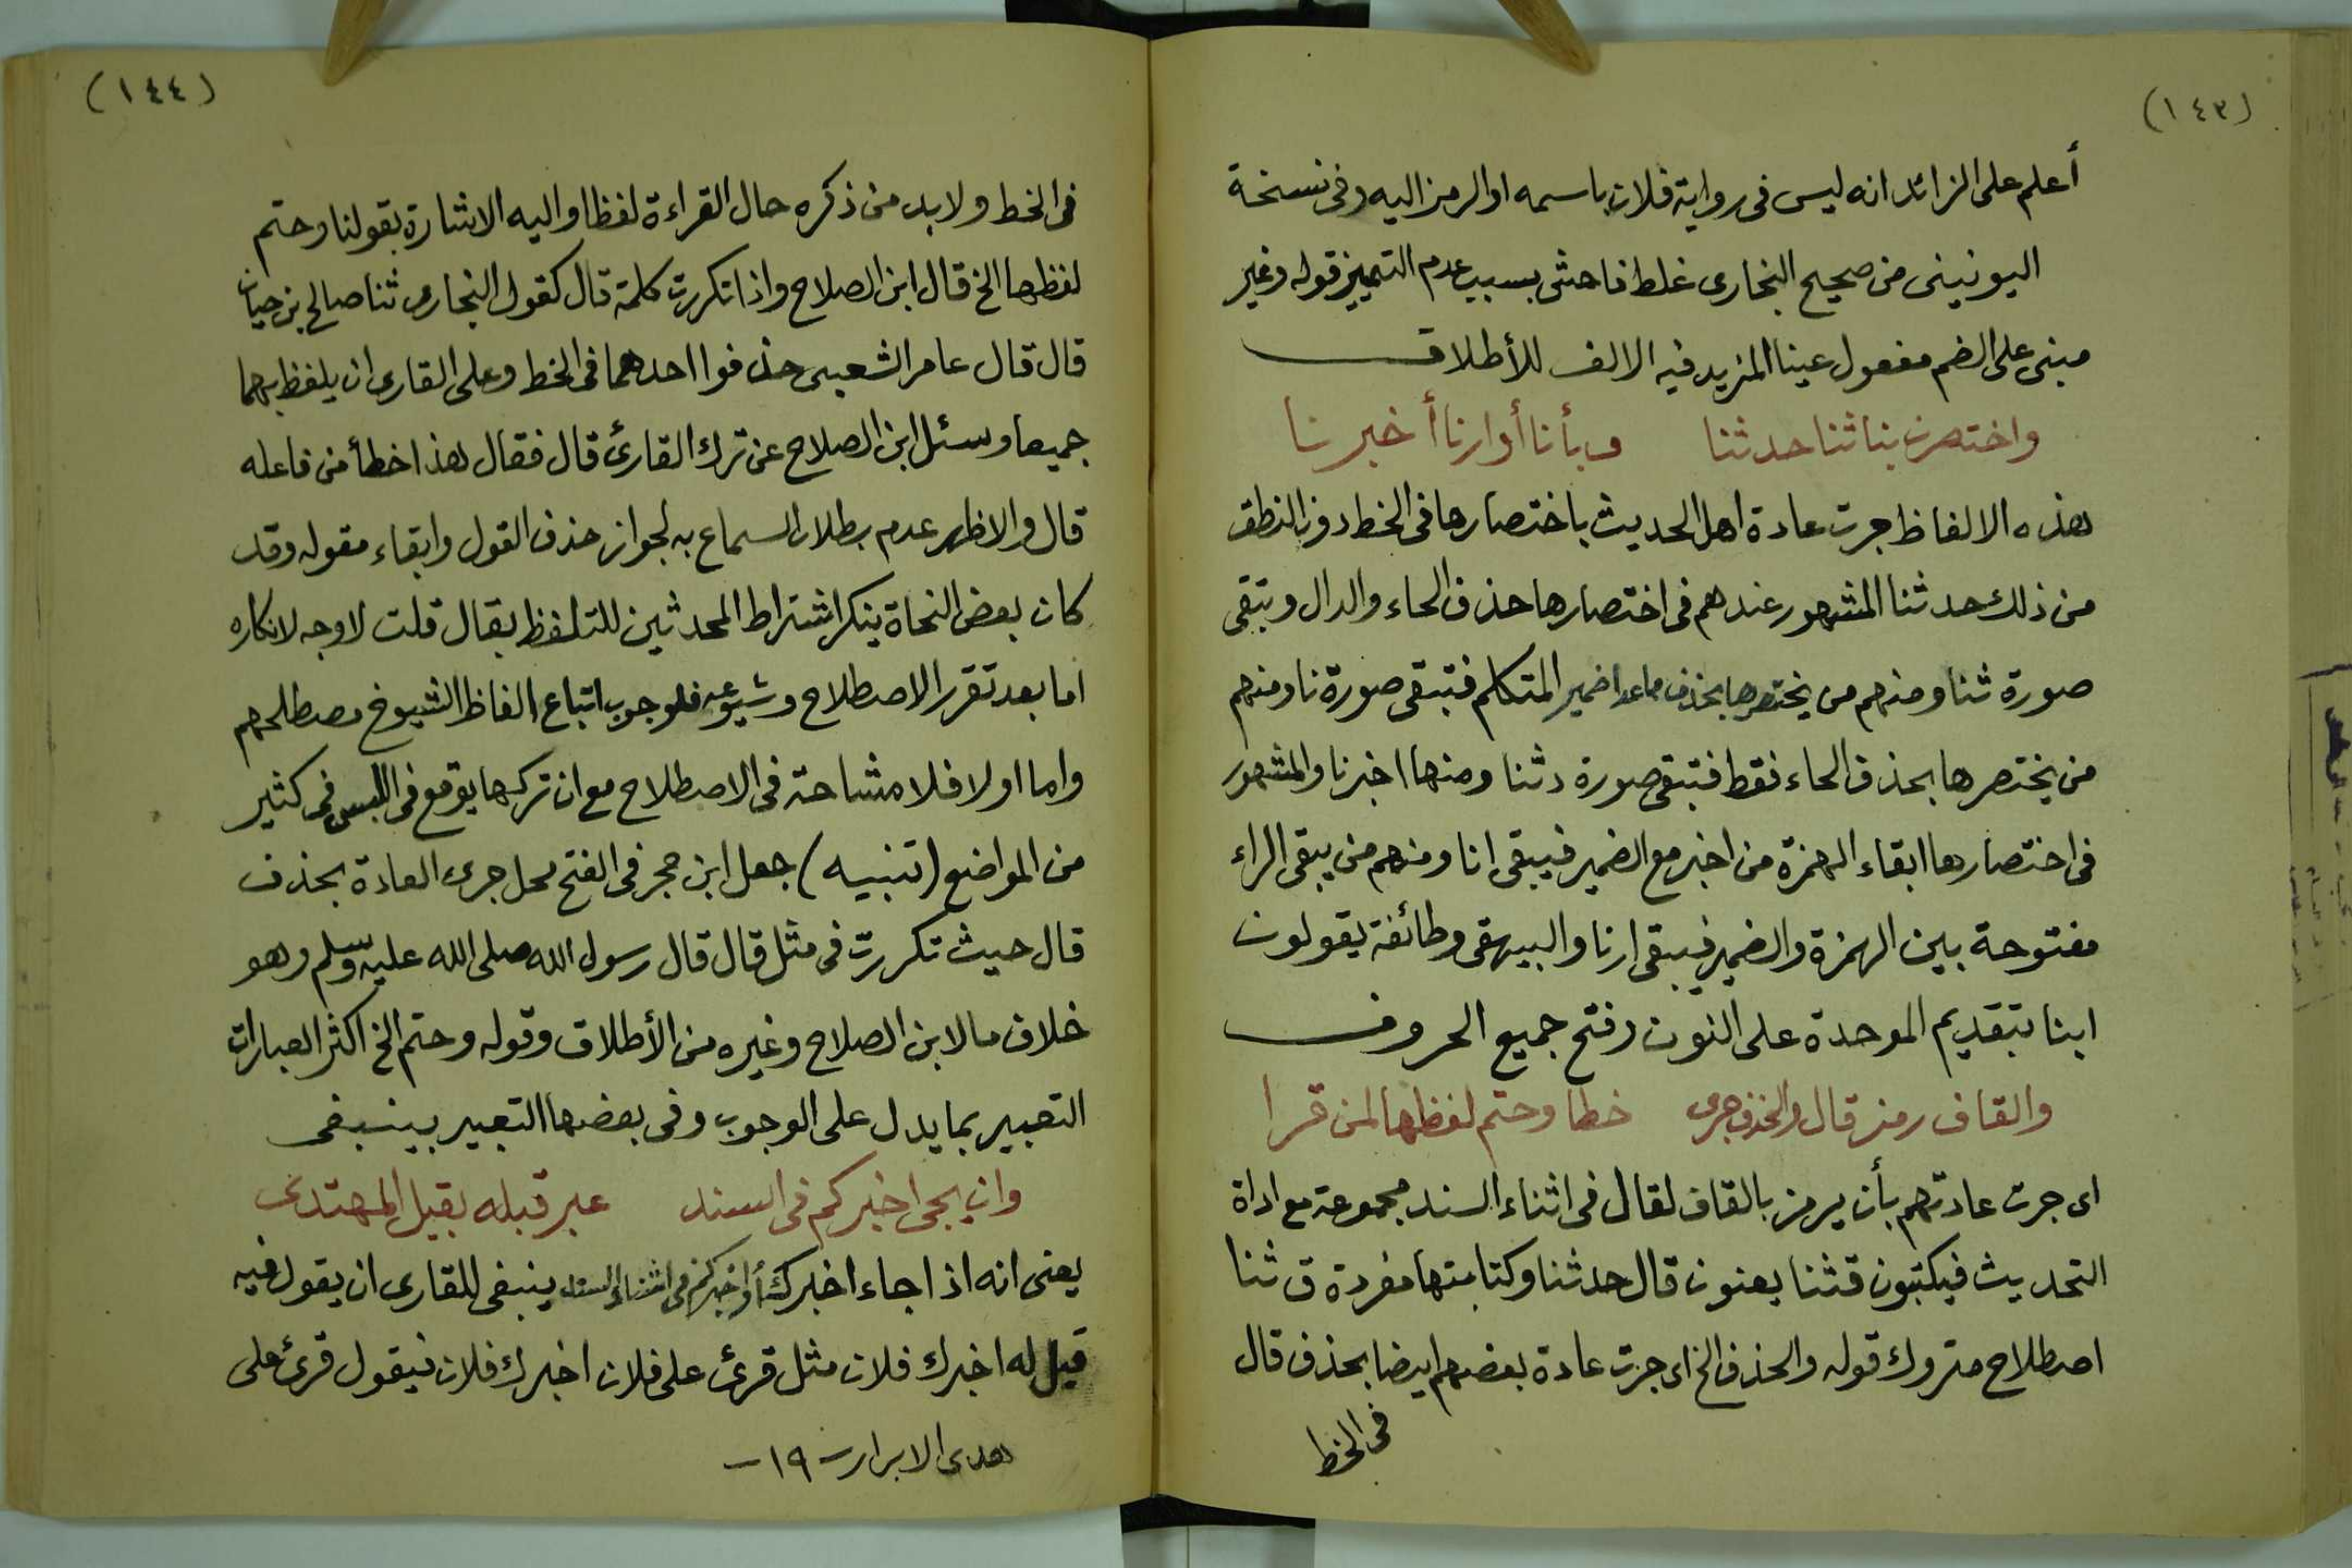 (١٤٣)
أعلم على الزائد انه ليس فى رواية فلان باسمه او الرمز اليه وفى نسخة
اليونينى من صحيح البخارى غلط فاحش بسبب عدم التمييز قوله وغير
مبنى على الضم مفعول عينا المزيد فيه الالف للأطلاق
واختصرن بنا ثنا حدثنا وبأنا أوارنا أخبرنا
هذه الالفاظ جرت عادة اهل الحديث باختصارها فى الخط دون النطق
من ذلك حدثنا المشهور عندهم فى اختصارها حذف الحاء والدال وتبقى
صورة ثنا ومنهم من يختصرها بحذف ماعدا ضمير المتكلم فتبقى صورة نا ومنهم
من يختصرها بحذف الحاء فقط فتبقى صورة دثنا ومنها اخبرنا والمشهور
فى اختصارها ابقاء الهمزة من اخبر مع الضمير فيبقى انا ومنهم من يبقى الراء
مفتوحة بين الهمزة والضمير فيبقى ارنا والبيهقى وطائفة يقولون
ابنا بتقديم الموحدة على النون وفتح جميع الحروف
والقاف رمز قال والحذف جرى خطا وحتم لفظها لمن قرا
اى جرت عادتهم بأن يرمز بالقاف لقال فى اثناء السند مجموعة مع اداة
التحديث فيكتبون قثنا يعنون قال حدثنا وكتابتها مفردة ق ثنا
اصطلاح متروك قوله والحذف الخ اى جرت عادة بعضهم ايضا بحذف قال
فى الخط
(١٤٤)
فى الخط ولابد من ذكره حال القراءة لفظا واليه الاشارة بقولنا وحتم
لفظها الخ قال ابن الصلاح واذا تكررت كلمة قال كقول البخارى ثنا صالح بن حيان
قال قال عامر الشعبى حذفوا احدهما فى الخط وعلى القارى ان يلفظ بهما
جميعا وسئل ابن الصلاح عن ترك القارئ قال فقال هذا خطأ من فاعله
قال والاظهر عدم بطلان السماع به لجواز حذف القول وابقاء مقوله وقد
كان بعض النحاة ينكر اشتراط المحدثين للتلفظ بقال قلت لاوجه لانكاره
اما بعد تقرر الاصطلاح وشيوعه فلوجوب اتباع الفاظ الشيوخ ومصطلحهم
واما اولا فلا مشاحة فى الاصطلاح مع ان تركها يوقع فى اللبس فى كثير
من المواضع (تنبيه) جعل ابن حجر فى الفتح محل جرى العادة بحذف
قال حيث تكررت فى مثل قال قال رسول الله صلى الله عليه وسلم وهو
خلاف ما لابن الصلاح وغيره من الأطلاق وقوله وحتم الخ اكثر العبارات
التعبير بما يدل على الوجوب وفى بعضها التعبير بينبغى
وان يجى اخبركم فى السند عبر قبله بقيل المهتدى
يعنى انه اذا جاء اخبرك أو اخبركم فى اثناء السند ينبغى للقارى ان يقول فيه
قيل له اخبرك فلان مثل قرئ على فلان اخبرك فلان فيقول قرئ على
هدى الابرار - ١٩ -